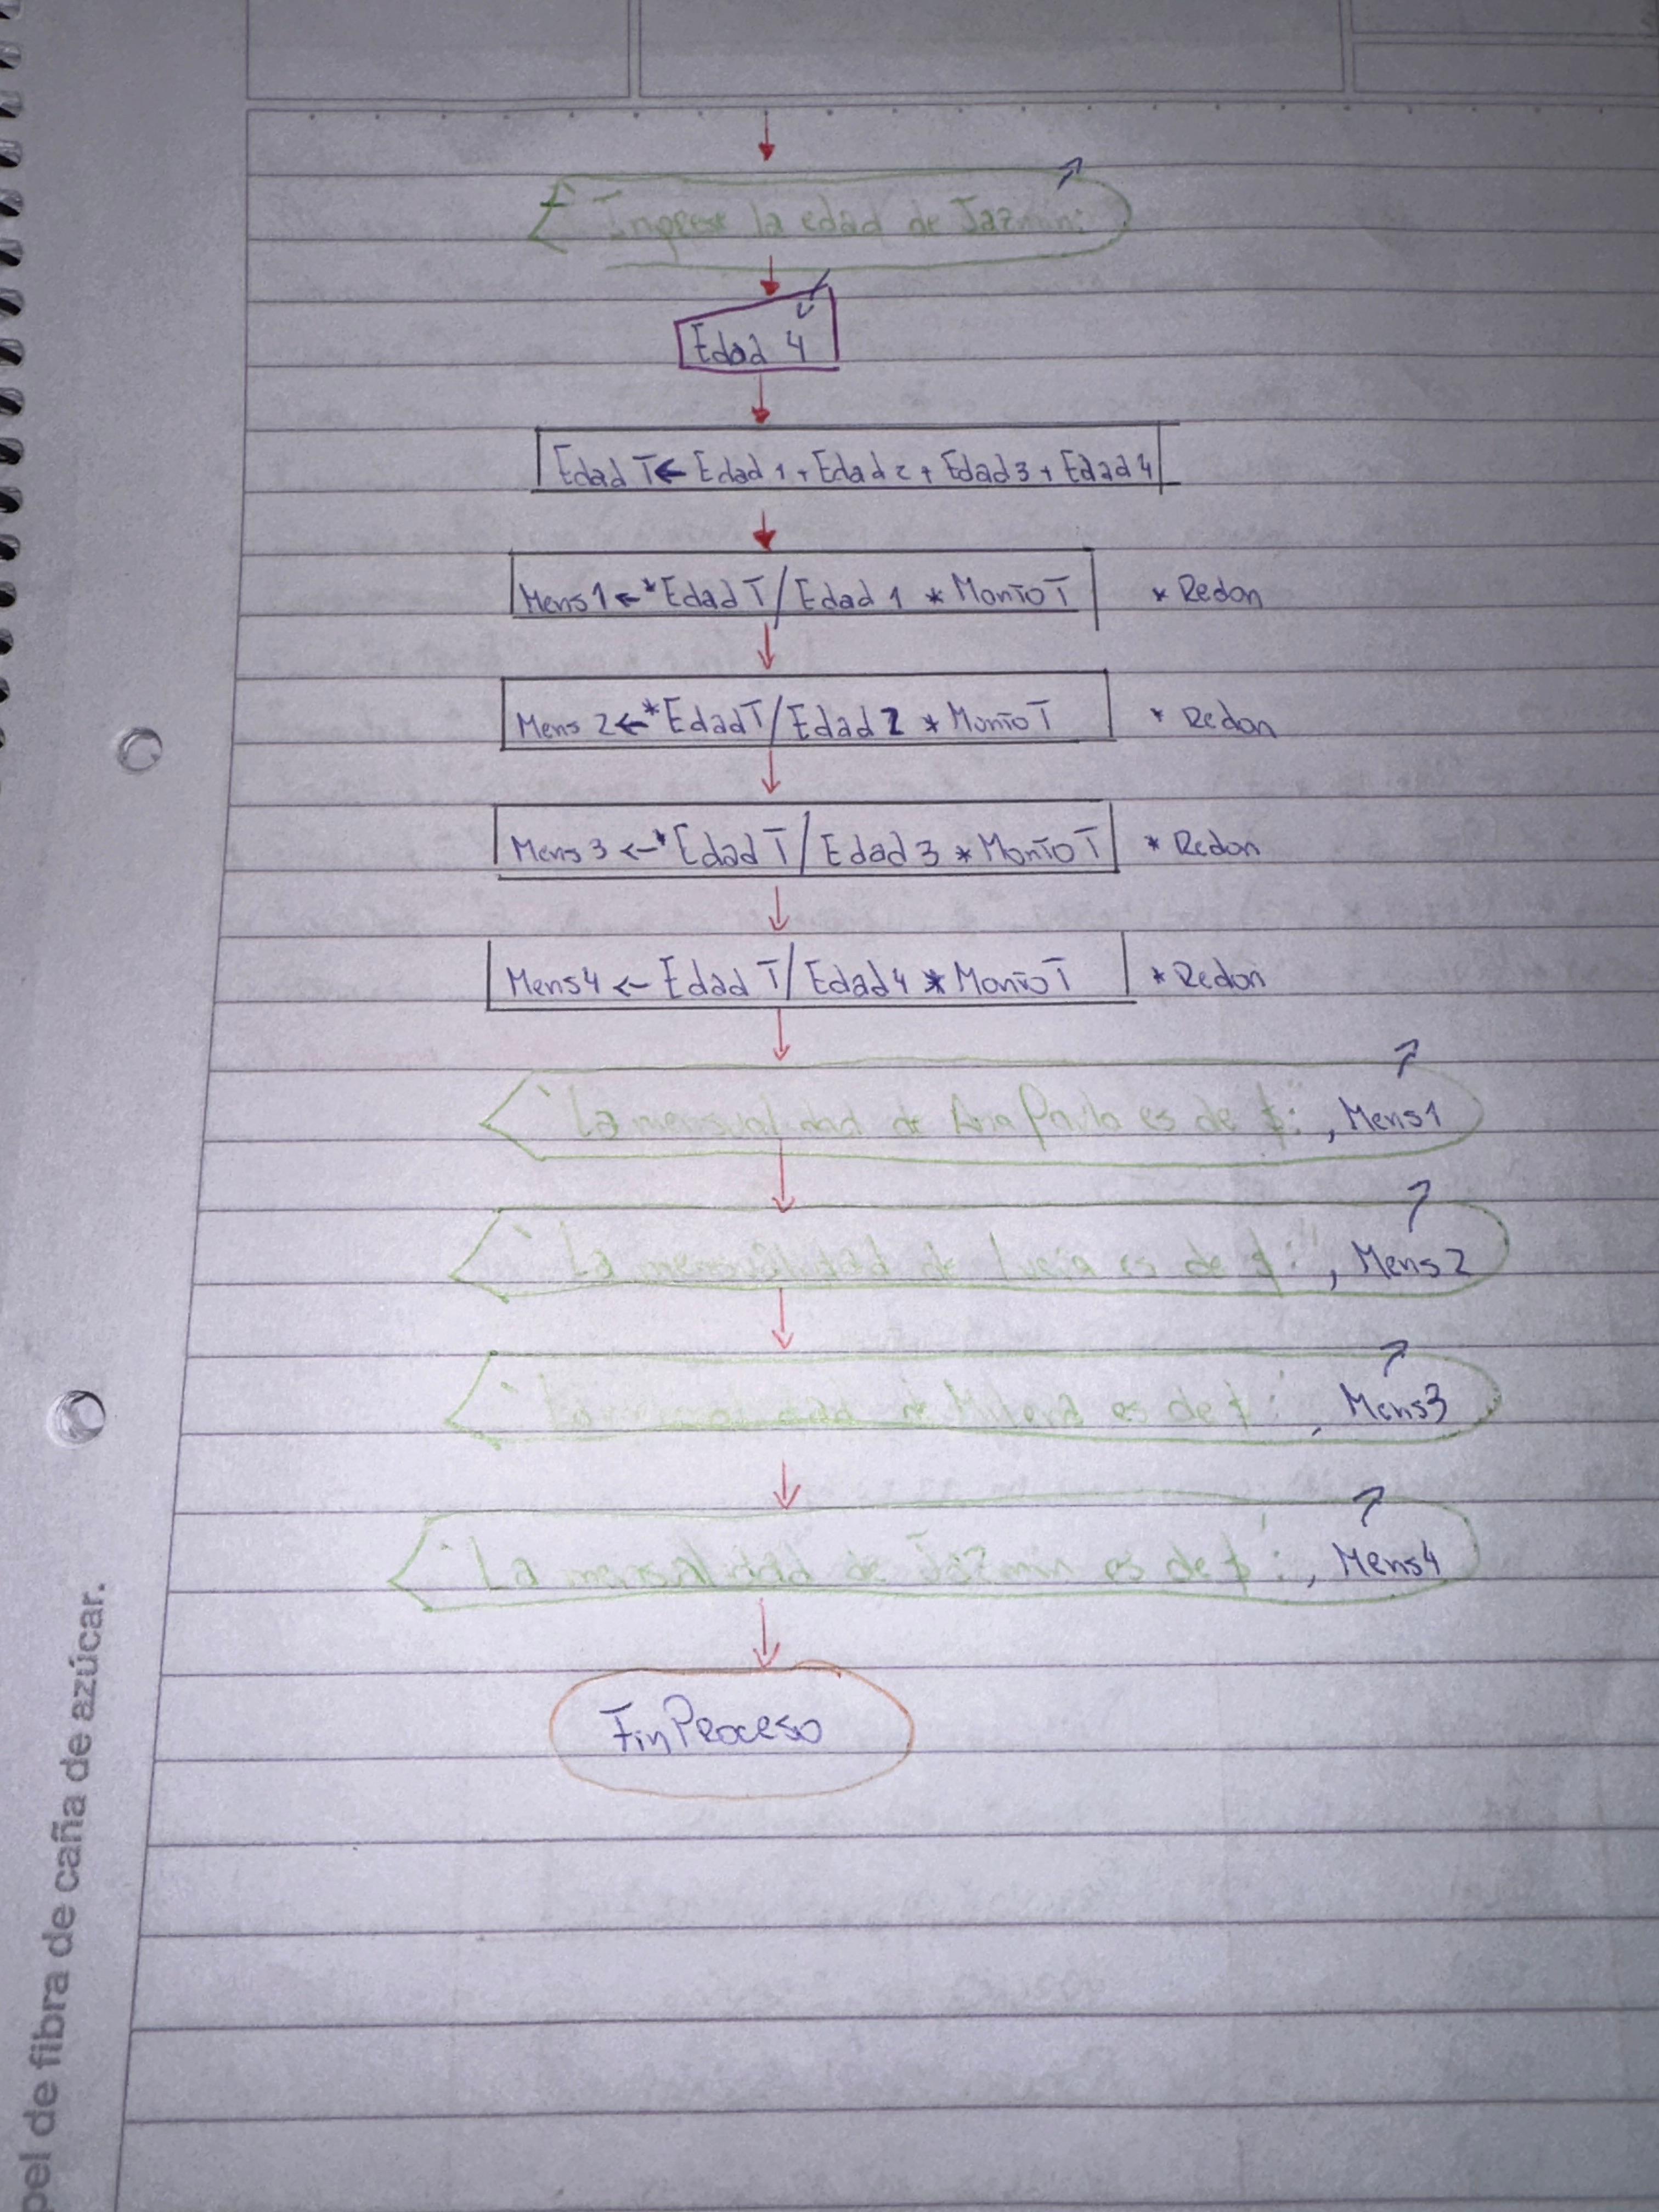 "Ingrese la edad de Jazmin:
Edad 4
Edad T← Edad 1 + Edad 2 + Edad 3 + Edad 4
Mens 1 ← *Edad T / Edad 1 * MontoT * Redon
Mens 2 ← *Edad T / Edad 2 * MontoT * Redon
Mens 3 ← *Edad T / Edad 3 * MontoT * Redon
Mens4 ← Edad T / Edad4 * MontoT * Redon
"La mensualidad de Ana Paula es de $:", Mens1
"La mensualidad de Lucía es de $:", Mens2
"La mensualidad de es de $:, Mens3
"La mensualidad de Jazmin es de $:, Mens4
FinProceso
pel de fibra de caña de azúcar.